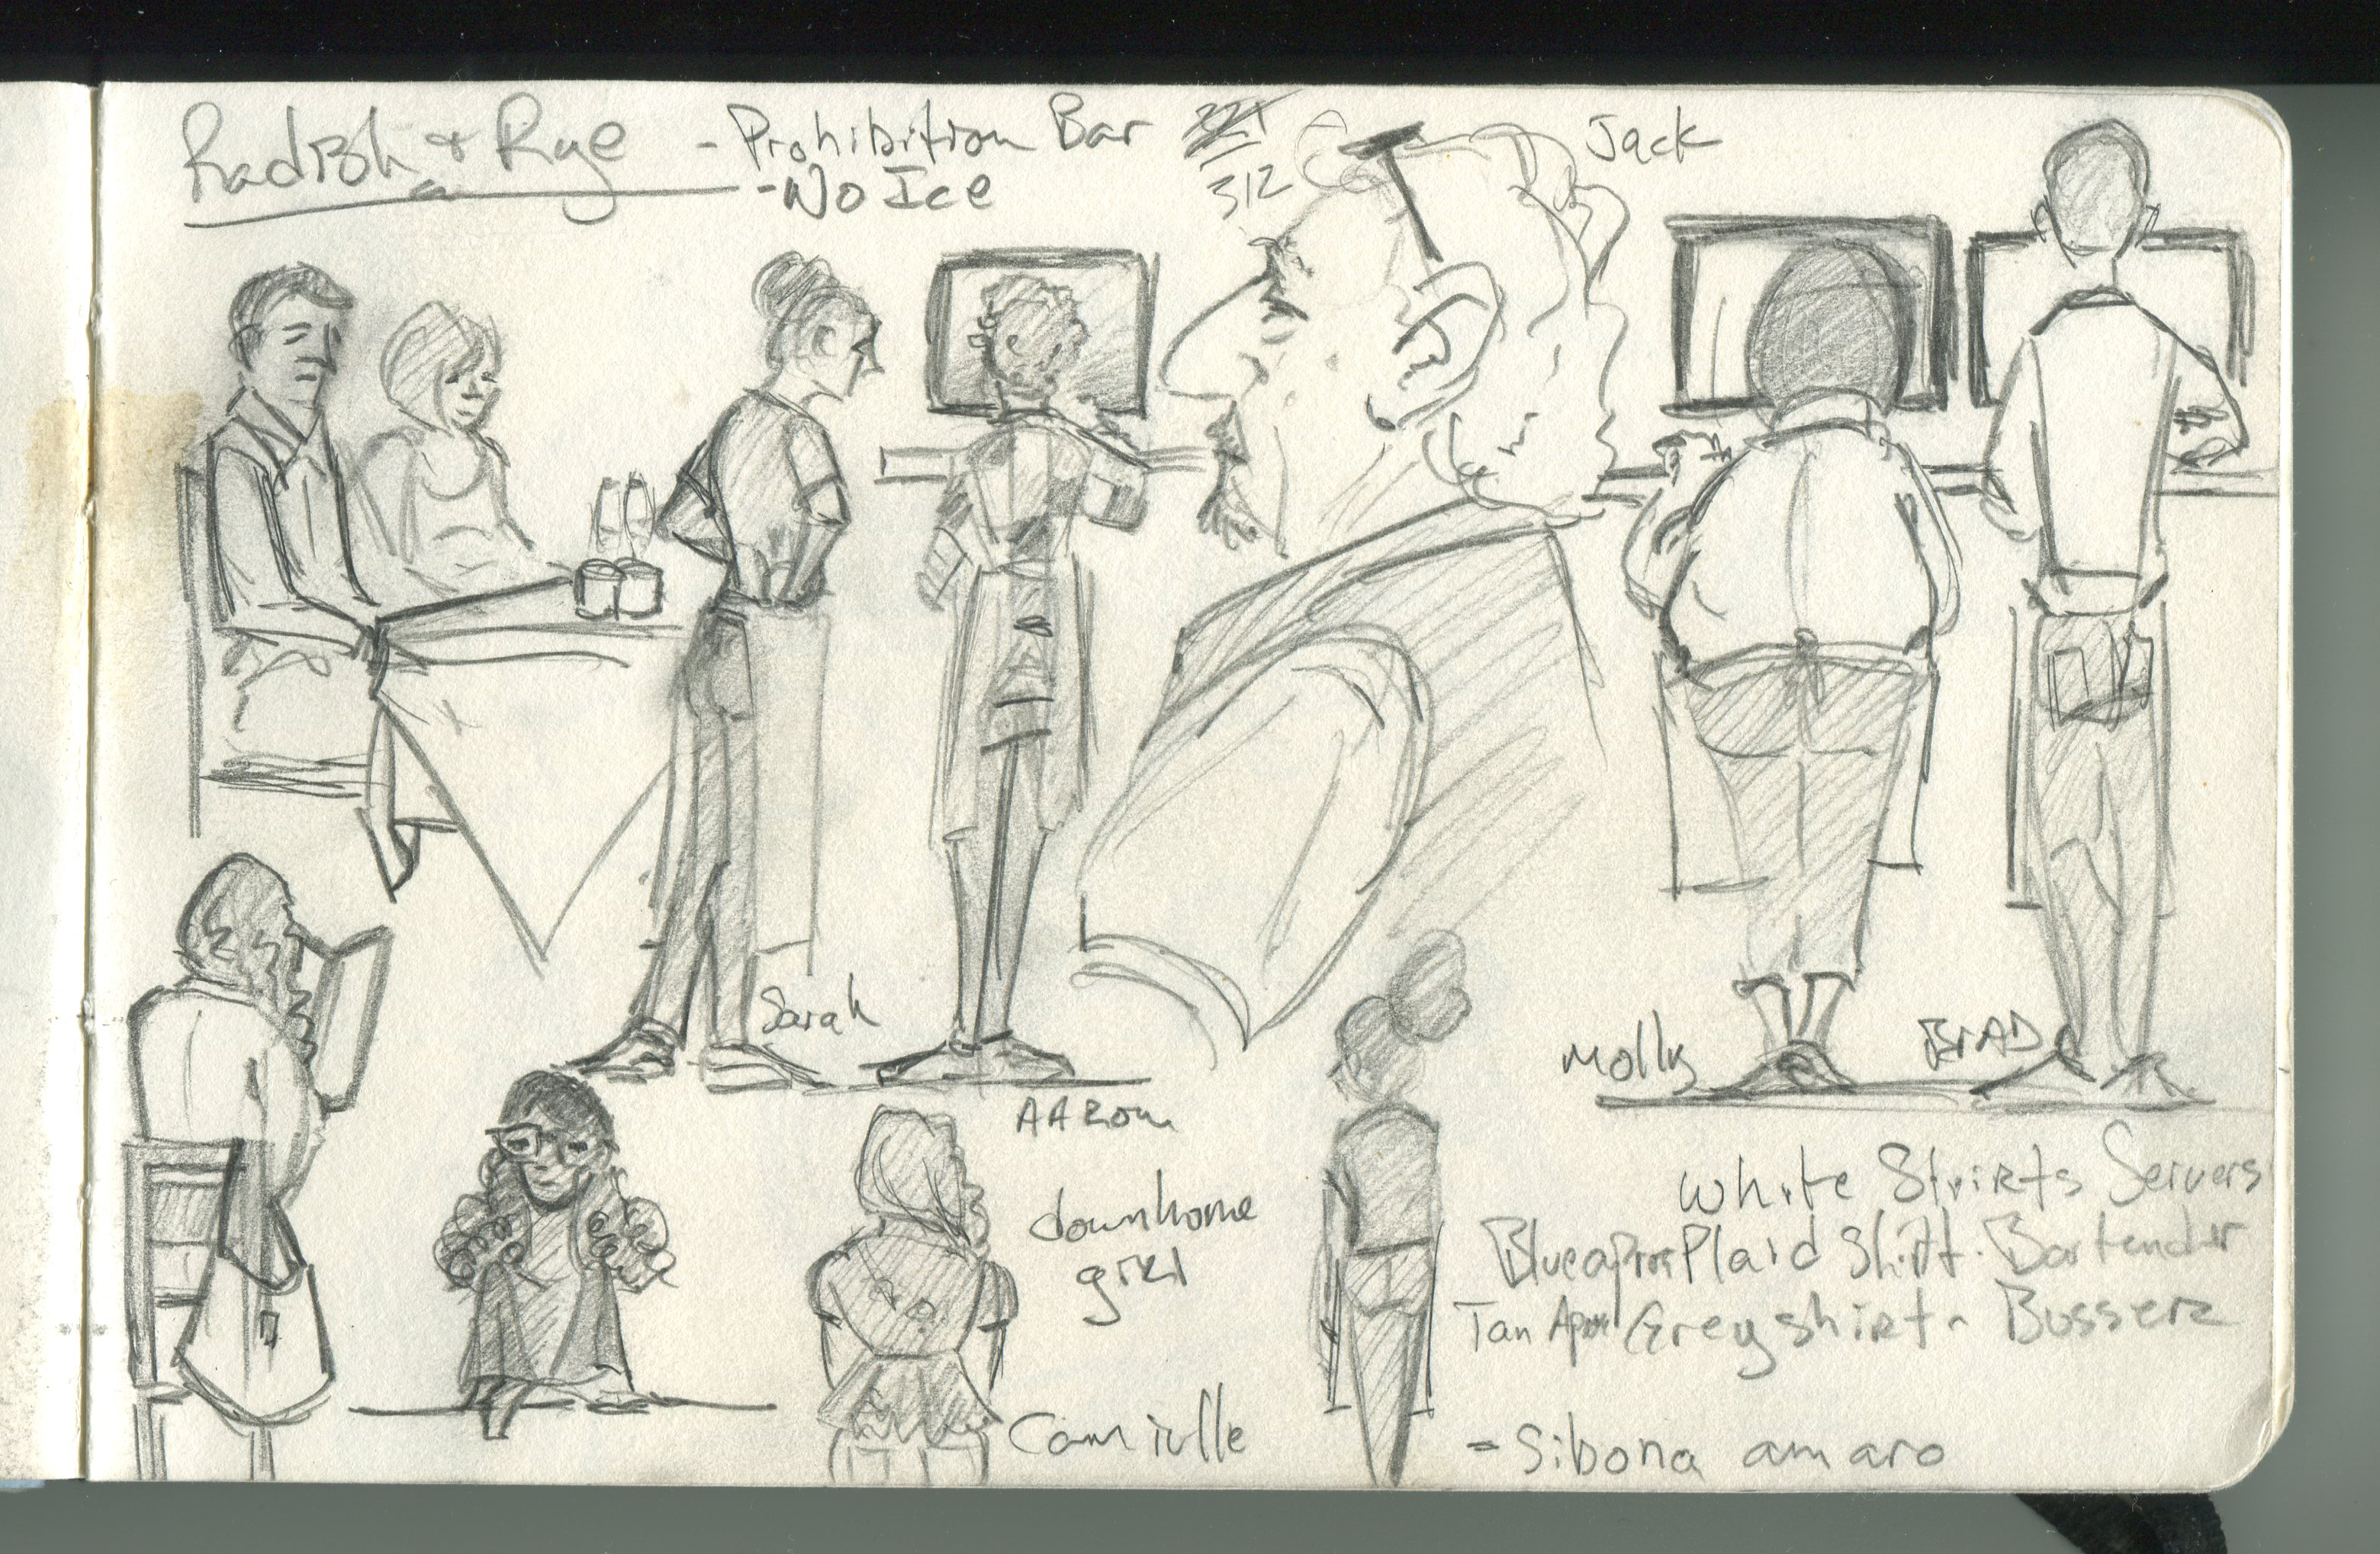 Radish & Rye - Prohibition Bar
- No Ice
312
Jack
Sarah
AARON
Molly
BrAD
downhome
girl
White Shirts Servers
Blue apron Plaid Shirt - Bartender
Tan Apron Grey shirt - Busser
Camille
- Sibona amaro